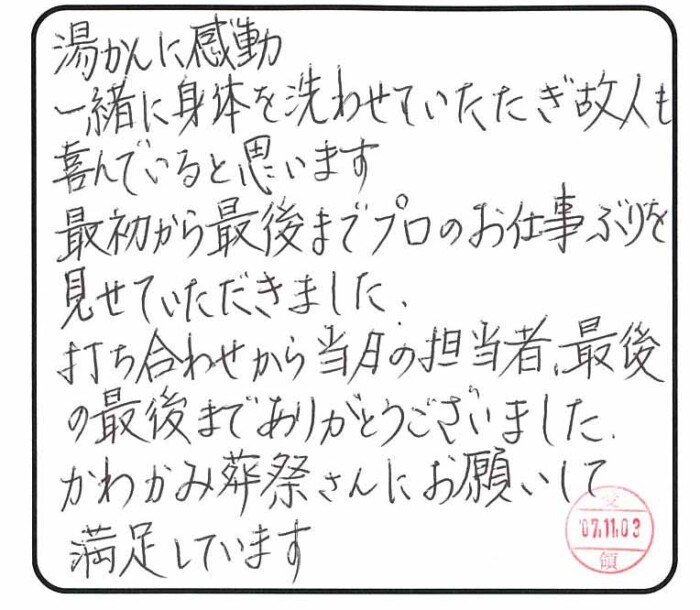 湯かんに感動
一緒に身体を洗わせていたたぎ故人も
喜んでいると思います
最初から最後までプロのお仕事ぶりを
見せていただきました.
打ち合わせから当日の担当者、最後
の最後までありがとうございました.
かわかみ葬祭さんにお願いして
満足しています
受
'07.11.03
領